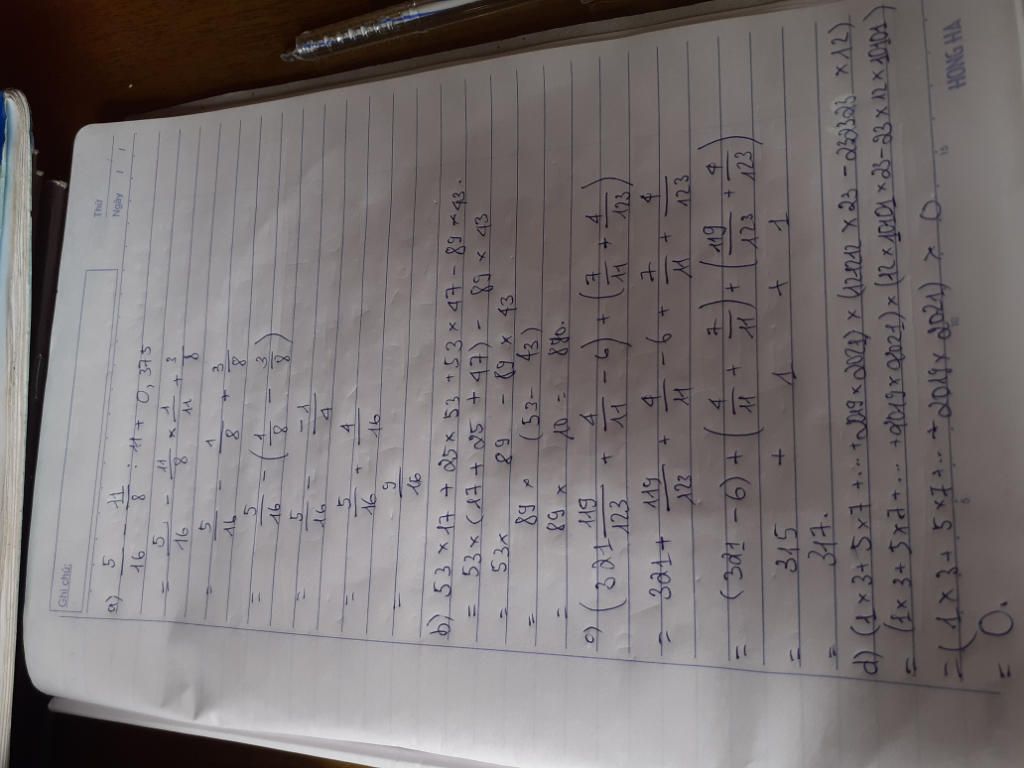 Thứ
Ngày
Ghi chú:
a) 5/16 - 11/8 : 11 + 0,375
= 5/16 - 11/8 × 1/11 + 3/8
= 5/16 - 1/8 + 3/8
= 5/16 - (1/8 - 3/8)
= 5/16 - -1/4
= 5/16 + 4/16
= 9/16
b) 53 × 17 + 25 × 53 + 53 × 47 - 89 × 43.
= 53 × (17 + 25 + 47) - 89 × 43
= 53 × 89 - 89 × 43
= 89 × (53 - 43)
= 89 × 10 = 890.
c) (321 119/123 + 4/11 - 6) + (7/11 + 4/123)
= 321 + 119/123 + 4/11 - 6 + 7/11 + 4/123
= (321 - 6) + (4/11 + 7/11) + (119/123 + 4/123)
= 315 + 1 + 1
= 317.
d) (1 × 3 + 5 × 7 + ... + 2019 × 2021) × (121212 × 23 - 232323 × 12)
= (1 × 3 + 5 × 7 + ... + 2019 × 2021) × (12 × 10101 × 23 - 23 × 12 × 10101)
= (1 × 3 + 5 × 7 + ... + 2019 × 2021) × 0
= 0.
HONG HA